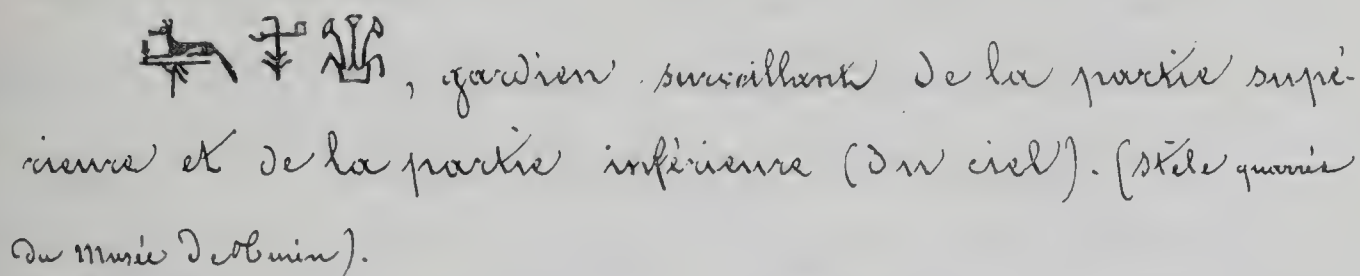 , gardien surveillant de la partie supé-
rieure et de la partie inférieure (du ciel). (Stèle quarrée
du Musée de Turin).